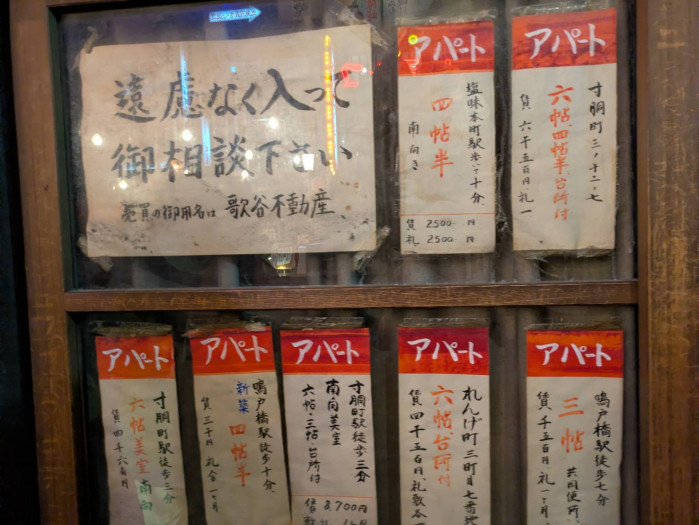 遠慮なく入って
御相談下さい
売買の御用名は 歌谷不動産
アパート
塩味本町駅歩いて十分
四帖半
南向き
賃 2500 円
礼 2500 円
アパート
寸胴町三ノ十二ノ七
六帖、四帖半、台所付
賃 六千五百円、礼一
アパート
寸胴町駅徒歩三分
六帖美室 南向
賃 四千六百円
アパート
鳴戸橋駅徒歩十分、
新築 四帖半
賃 三千円 礼金一ヶ月
アパート
寸胴町駅徒歩三分
南向美室
六帖・三帖・台所付
賃 8,700円
アパート
れんげ町三町目七番地
六帖、台所付
賃 四千五百円、礼敷各一
アパート
鳴戸橋駅徒歩七分
三帖 共同便所、
賃、千五百円、礼一ヶ月、